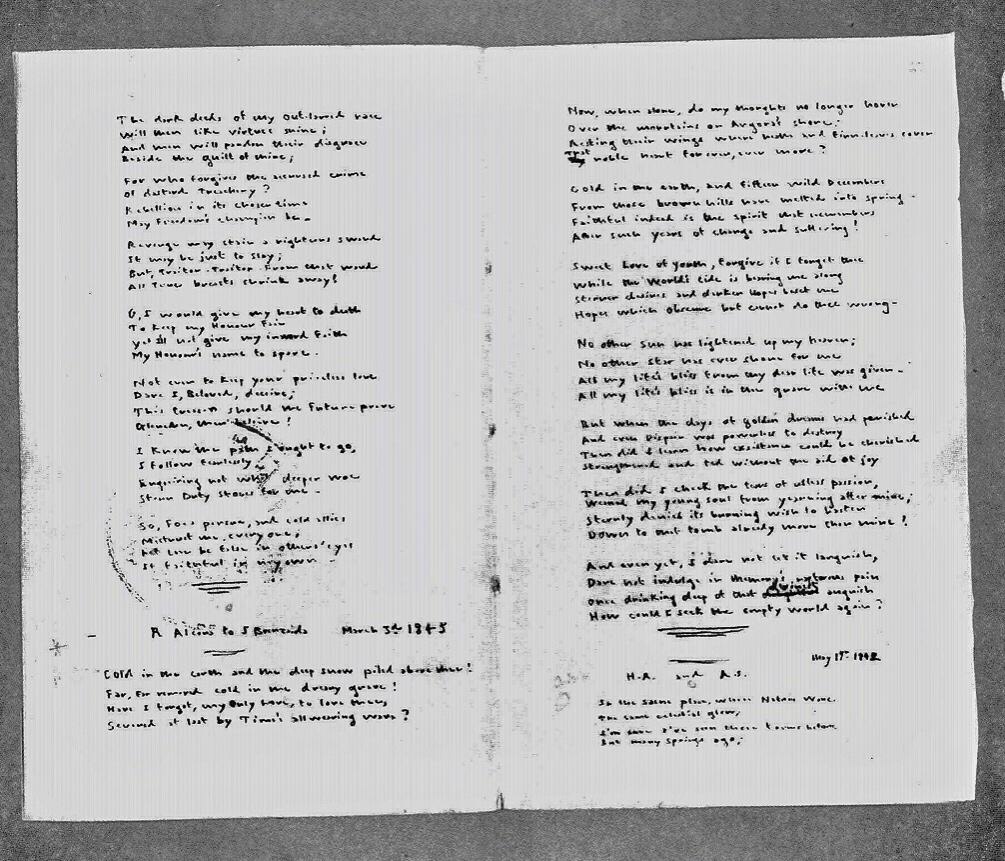 The dark deeds of my outlawed race
Will then like virtues shine;
And men will pardon their disgrace
Beside the guilt of mine;
For who forgives the accursed crime
Of dastard Treachery?
Rebellion in its chosen time
May Freedom's champion be -
Revenge may stain a righteous sword
It may be just to slay;
But, Traitor - Traitor - From that word
All True breasts shrink away!
O, I would give my heart to death
To keep my Honour Fair
yet Ill not give my inward Faith
My Honour's name to spare.
Not even to keep your priceless love
Dare I, Beloved, deceive;
This treason should the Future prove
Gleneden, then believe!
I know the path I ought to go,
I follow fearlessly
Enquiring not what deeper woe
Stern Duty stores for me -
So, Foes pursue, and cold allies
Mistrust me, every one;
Let me be false in others' eyes
If faithful in my own -
R Alcona to J Brenzaida March 3rd 1845
Cold in the earth and the deep snow piled above thee!
Far, Far removed cold in the dreary grave!
Have I forgot, my Only Love, to love thee,
Severed at last by Time's all wearing wave?
Now, when alone, do my thoughts no longer hover
Over the mountains on Angora's shore;
Resting their wings where heath and fern-leaves cover
That noble heart for ever, ever more?
Cold in the earth, and fifteen wild Decembers
From those brown hills have melted into spring -
Faithful indeed is the spirit that remembers
After such years of change and suffering!
Sweet Love of youth, forgive if I forget thee
While the World's tide is bearing me along
Sterner desires and darker Hopes beset me
Hopes which obscure but cannot do thee wrong -
No other Sun has lightened up my heaven;
No other Star has ever shone for me
All my life's bliss from thy dear life was given -
All my life's bliss is in the grave with thee
But when the days of golden dreams had perished
And even Despair was powerless to destroy
Then did I learn how existence could be cherished
Strengthened and fed without the aid of joy
Then did I check the tears of useless passion,
Weaned my young soul from yearning after thine;
Sternly denied its burning wish to hasten
Down to that tomb already more than mine!
And even yet, I dare not let it languish,
Dare not indulge in Memory's rapturous pain
Once drinking deep of that divinest anguish
How could I seek the empty world again?
May 17th 1842
H.A. and A.S.
In the same place, when Nature wore
The same celestial glow,
I'm sure I've seen these forms before
But many springs ago;